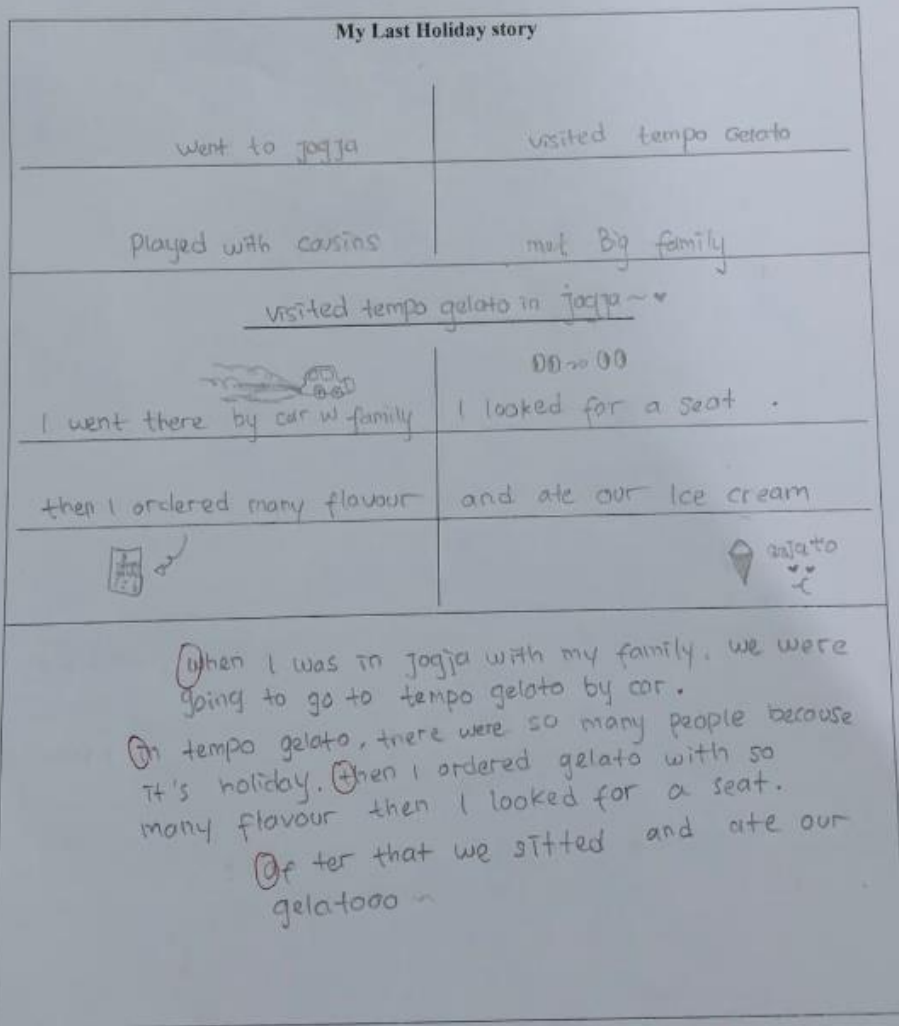 My Last Holiday story
went to jogja
visited tempo Gelato
played with cousins
met Big family
visited tempo gelato in jogja~♥
I went there by car w family
I looked for a seat .
then I ordered many flavour
and ate our Ice cream
when I was in jogja with my family. we were
going to go to tempo gelato by car.
in tempo gelato, there were so many people because
it's holiday. then I ordered gelato with so
many flavour then I looked for a seat.
after that we sitted and ate our
gelatooo ~